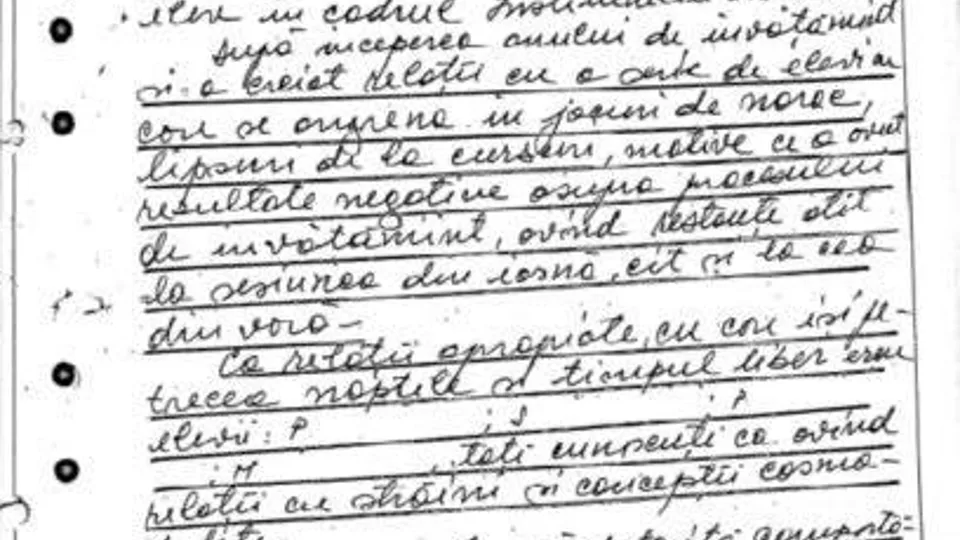 eleve in cadrul
După inceperea anului de invătămînd
și-a creiat relații cu o serie de elevi au
care se angrena in jocuri de noroc,
lipsuri de la cursuri, motive ce a avut
resultate negative asupra procesului
de invătămînt, avînd restanțe atît
la sesiunea din iarnă, cît și la cea
din vară-
Ca relații apropiate, cu care iși pe-
trecea nopțile și timpul liber erau
elevii: P ; S ; P
; M , toți cunoscuți ca avînd
relații cu străini și concepții cosmo-
comporta=